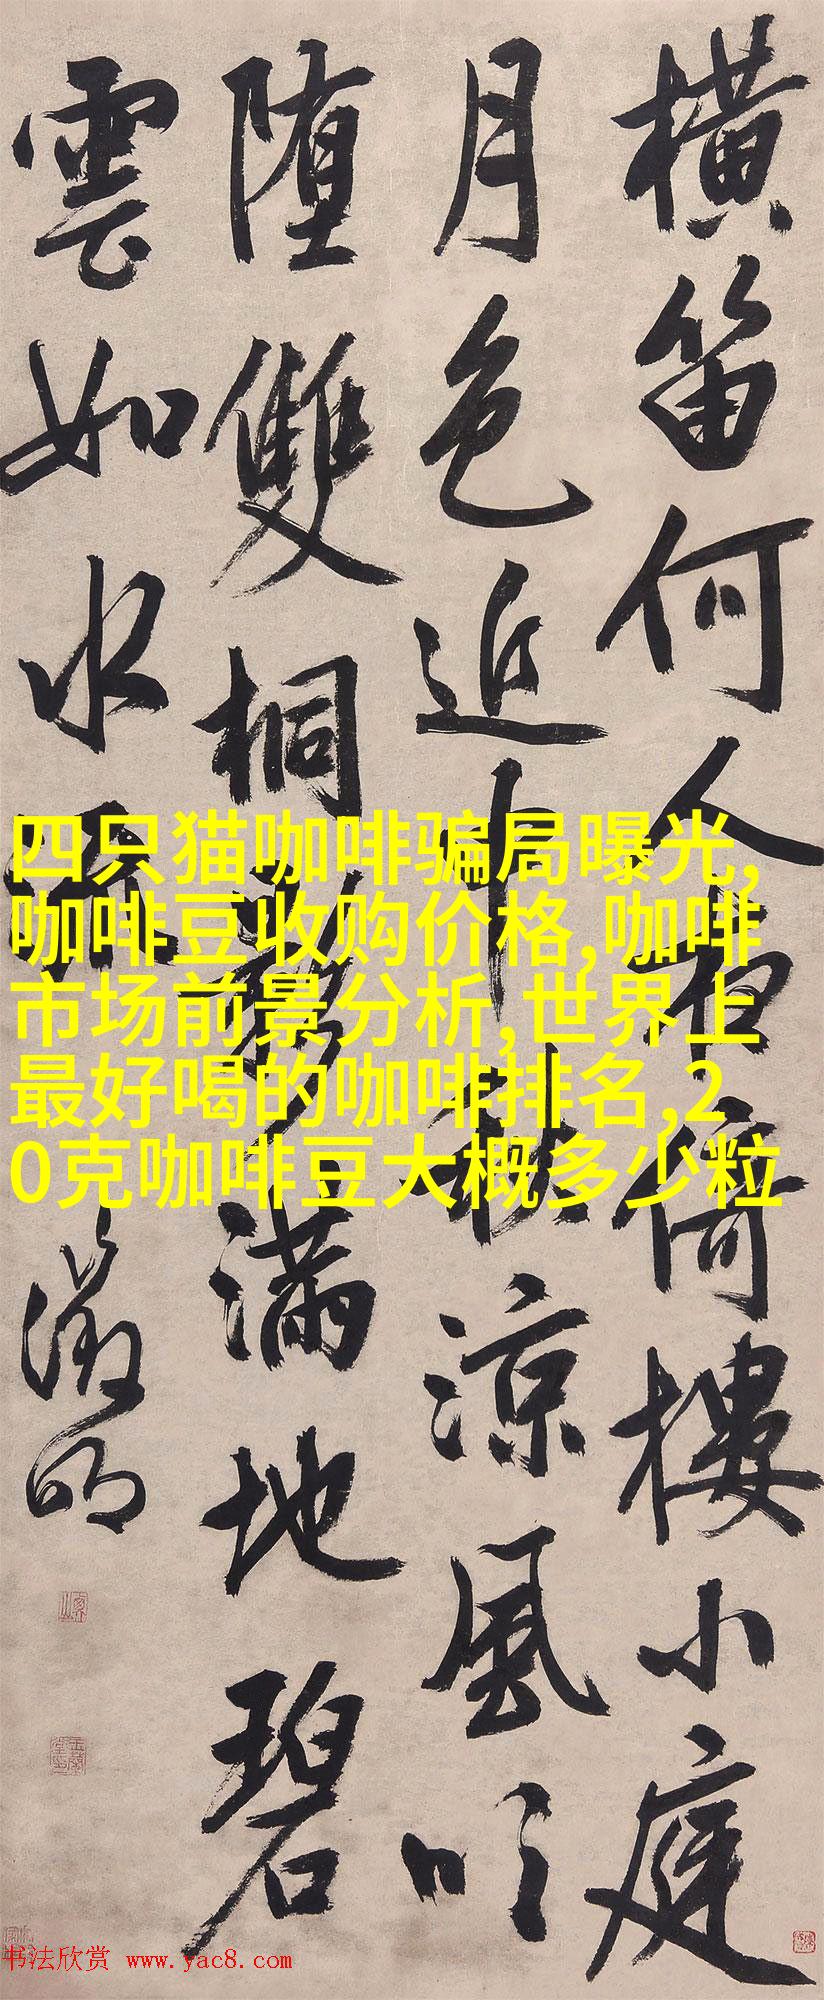 橫笛何人夜倚樓小庭
月色近中秋涼風吹
堕雙桐影滿地碧
雲如水流
徵明
四只猫咖啡骗局曝光,
咖啡豆收购价格,咖啡
市场前景分析,世界上
最好喝的咖啡排名,2
0克咖啡豆大概多少粒
书法欣赏 www.yac8.com